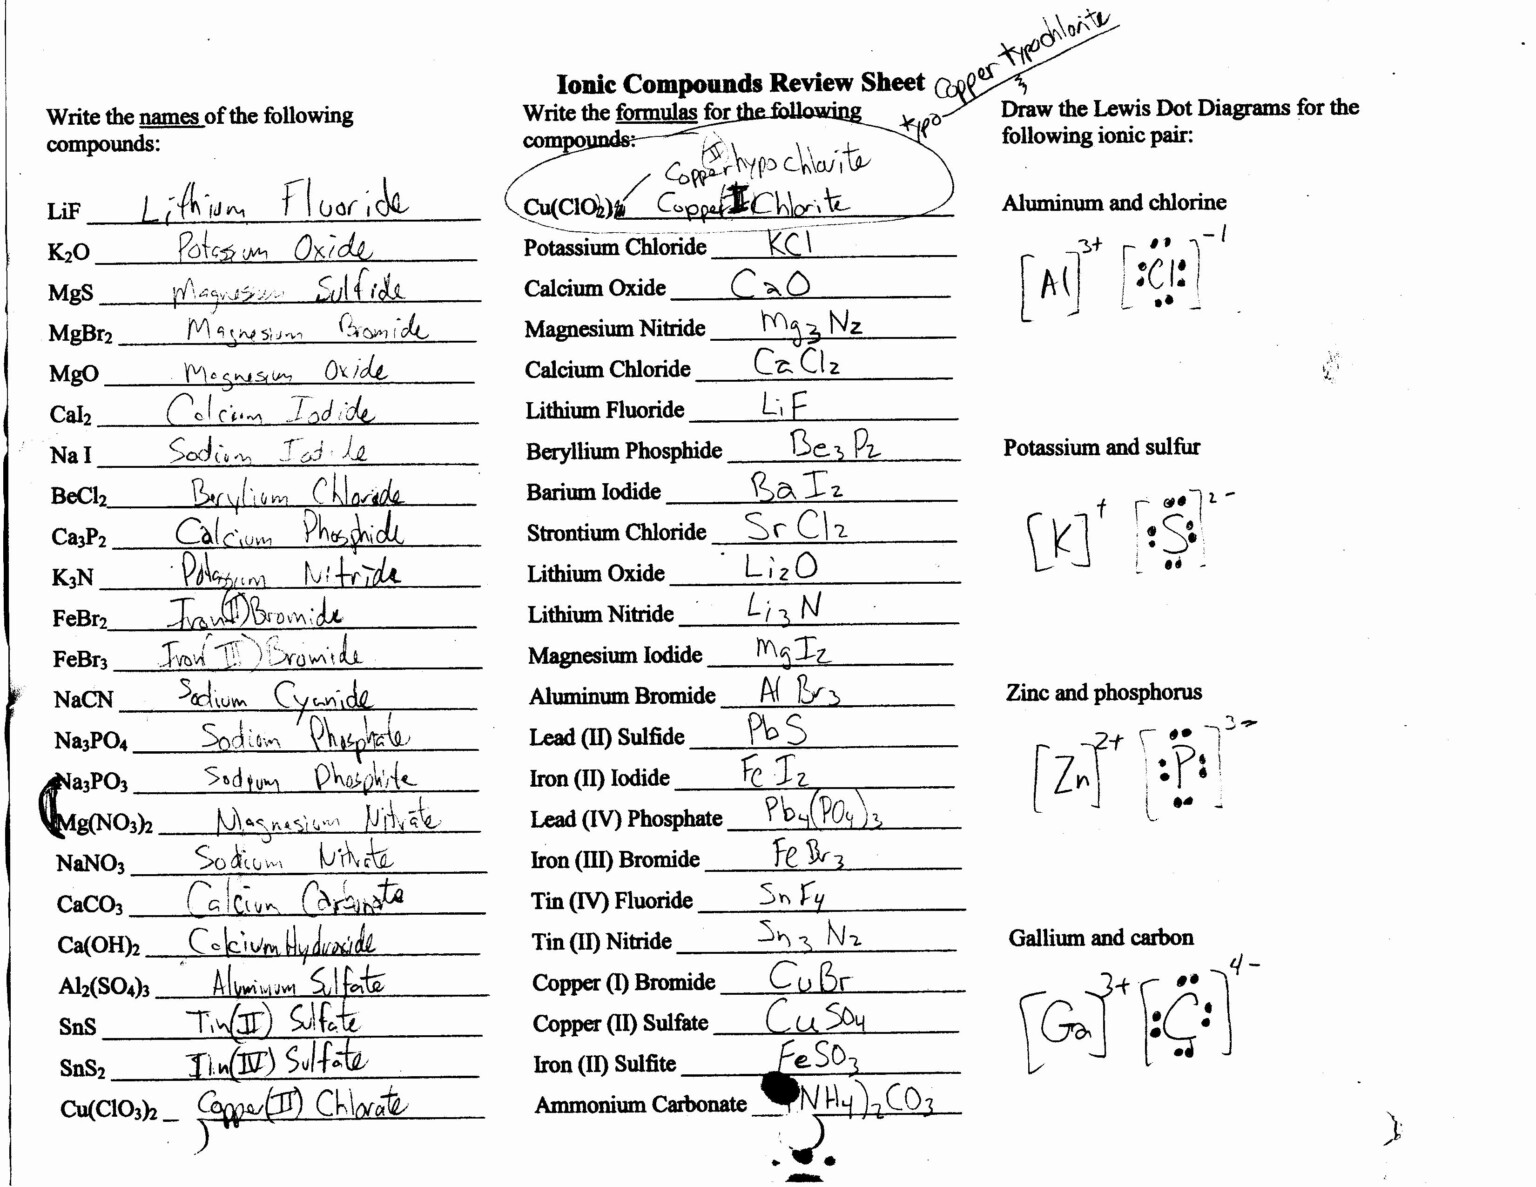 Copper Hypochlorite
typo
Ionic Compounds Review Sheet
Write the names of the following
compounds:
LiF Lithium Fluoride
K₂O Potassium Oxide
MgS Magnesium Sulfide
MgBr₂ Magnesium Bromide
MgO Magnesium Oxide
CaI₂ Calcium Iodide
Na I Sodium
BeCl₂ Berylium Chloride
Ca₃P₂ Calcium Phosphide
K₃N Potassium Nitride
FeBr₂ Iron(II) Bromide
FeBr₃ Iron(III) Bromide
NaCN Sodium Cyanide
Na₃PO₄ Sodium Phosphate
Na₃PO₃ Sodium Phosphite
Mg(NO₃)₂ Magnesium Nitrate
NaNO₃ Sodium Nitrate
CaCO₃ Calcium Carbonate
Ca(OH)₂ Calcium Hydroxide
Al₂(SO₄)₃ Aluminum Sulfate
SnS Tin(II) Sulfate
SnS₂ Tin(IV) Sulfate
Cu(ClO₃)₂ Copper(II) Chlorate
Write the formulas for the following
compounds:
Copper (II) hypochlorite
Cu(ClO₂) Copper I Chlorite
Potassium Chloride KCl
Calcium Oxide CaO
Magnesium Nitride Mg₃N₂
Calcium Chloride CaCl₂
Lithium Fluoride LiF
Beryllium Phosphide Be₃P₂
Barium Iodide BaI₂
Strontium Chloride SrCl₂
Lithium Oxide Li₂O
Lithium Nitride Li₃N
Magnesium Iodide MgI₂
Aluminum Bromide AlBr₃
Lead (II) Sulfide PbS
Iron (II) Iodide FeI₂
Lead (IV) Phosphate Pb₄(PO₄)₃
Iron (III) Bromide FeBr₃
Tin (IV) Fluoride SnF₄
Tin (II) Nitride Sn₃N₂
Copper (I) Bromide CuBr
Copper (II) Sulfate CuSO₄
Iron (II) Sulfite FeSO₃
Ammonium Carbonate (NH₄)₂CO₃
Draw the Lewis Dot Diagrams for the
following ionic pair:
Aluminum and chlorine
[Al]³⁺ [Cl]⁻¹
Potassium and sulfur
[K]⁺ [S]²⁻
Zinc and phosphorus
[Zn]²⁺ [P]³⁻
Gallium and carbon
[Ga]³⁺ [C]⁴⁻